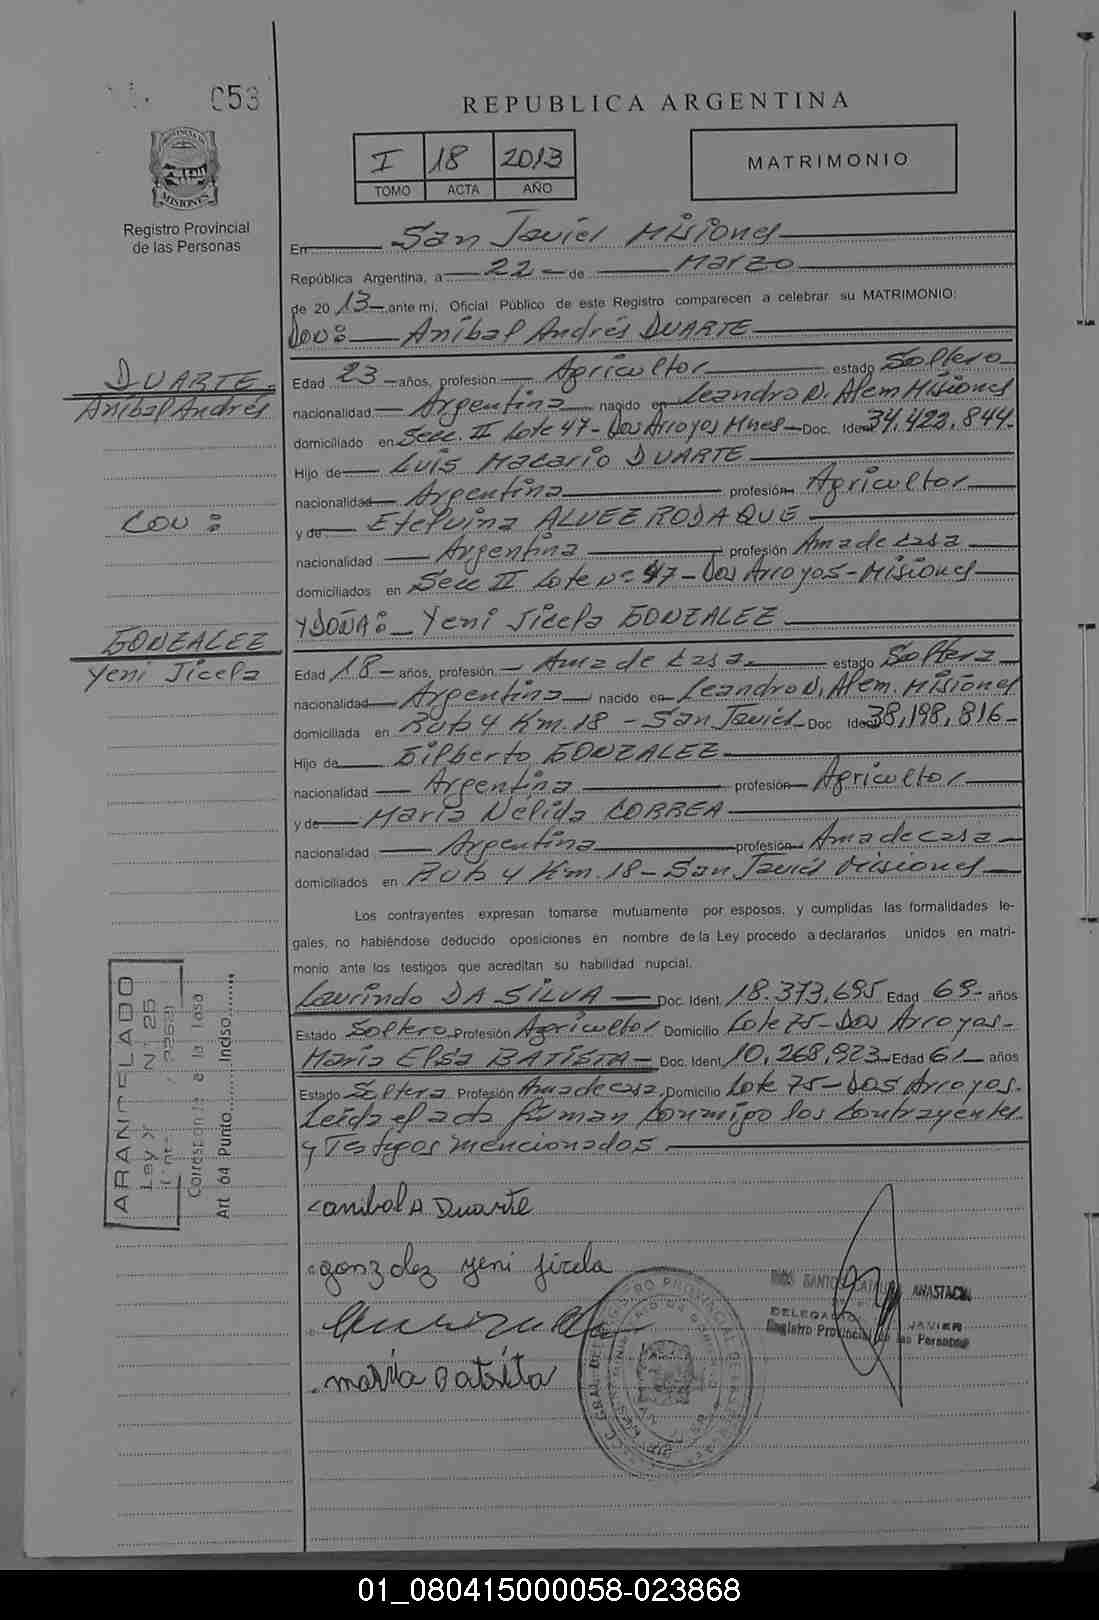 053
REPUBLICA ARGENTINA
I 18 2013
TOMO ACTA AÑO
MATRIMONIO
MISIONES
Registro Provincial
de las Personas
En San Javier Misiones
República Argentina, a 22 de Marzo
de 2013 ante mi, Oficial Público de este Registro comparecen a celebrar su MATRIMONIO:
DON: Aníbal Andrés DUARTE
DUARTE
Aníbal Andrés
CON:
GONZALEZ
Yeni Jicela
Edad 23 años, profesión Agricultor estado Soltero
nacionalidad Argentina nacido en Leandro N. Alem Misiones
domiciliado en Secc. II Lote 47 - Dos Arroyos Mnes - Doc. Ident 34,422,844-
Hijo de Luis Macario DUARTE
nacionalidad Argentina profesión Agricultor
y de Etelvina ALVEZ RODAQUE
nacionalidad Argentina profesión Ama de casa
domiciliados en Secc II Lote nº 47 - Dos Arroyos - Misiones
Y DOÑA: Yeni Jicela GONZALEZ
Edad 18 - años, profesión Ama de casa. estado Soltera
nacionalidad Argentina nacido en Leandro N. Alem. Misiones
domiciliada en Ruta 4 Km. 18 - San Javier Doc Ident 38,198,816-
Hijo de Gilberto GONZALEZ
nacionalidad Argentina profesión Agricultor
y de María Nélida CORREA
nacionalidad Argentina profesión Ama de casa
domiciliados en Ruta 4 Km. 18 - San Javier Misiones
Los contrayentes expresan tomarse mutuamente por esposos, y cumplidas las formalidades le-
gales, no habiéndose deducido oposiciones en nombre de la Ley procedo a declararlos unidos en matri-
monio ante los testigos que acreditan su habilidad nupcial.
Laurindo DA SILVA Doc. Ident. 18.373,695 Edad 69- años
Estado Soltero Profesión Agricultor Domicilio Lote 75 - Dos Arroyos-
María Elsa BATISTA - Doc. Ident. 10,268,923 Edad 61 años
Estado Soltera Profesión Ama de casa, Domicilio Lote 75 - Dos Arroyos.
Leída el acta firman conmigo los contrayentes
y Testigos mencionados.
ARANCELADO
Ley X Nº 25
Corresponde a la Tasa
Art 64 Punto Inciso
anibal A Duarte
gonzalez yeni jicela
maria batista
ANASTACIA
DELEGADO JAVIER
Registro Provincial de las Personas
01_080415000058-023868